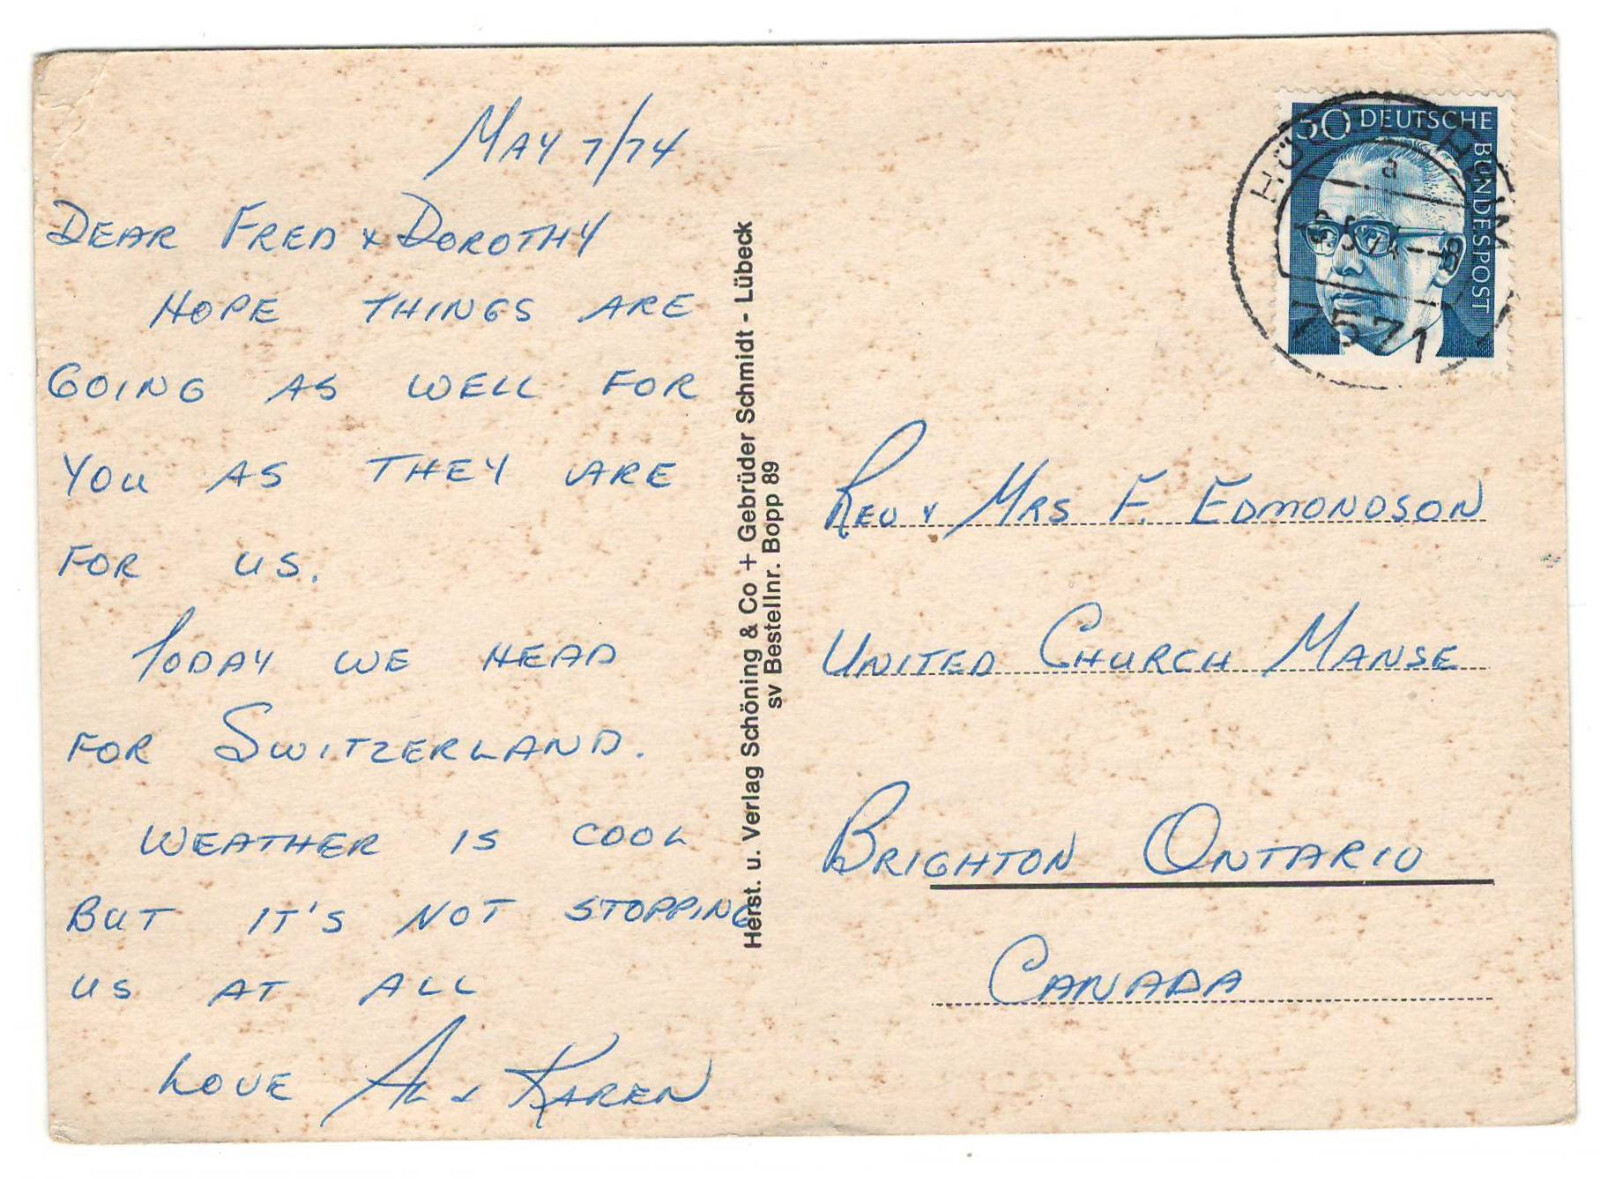 MAY 7/74
DEAR FRED & DOROTHY
HOPE THINGS ARE
GOING AS WELL FOR
YOU AS THEY ARE
FOR US.
TODAY WE HEAD
FOR SWITZERLAND.
WEATHER IS COOL
BUT IT'S NOT STOPPING
US AT ALL
LOVE AL & KAREN
Herst. u. Verlag Schöning & Co + Gebrüder Schmidt - Lübeck
sv Bestellnr. Bopp 89
50 DEUTSCHE
BUNDESPOST
a
7571
REV & MRS F. EDMONDSON
UNITED CHURCH MANSE
BRIGHTON ONTARIO
CANADA